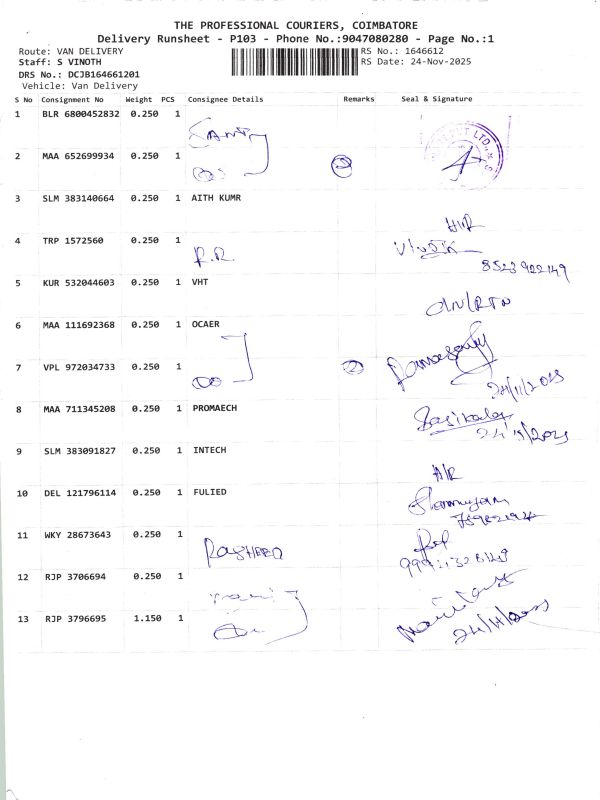 THE PROFESSIONAL COURIERS, COIMBATORE
Delivery Runsheet - P103 - Phone No.:9047080280 - Page No.:1
Route: VAN DELIVERY RS No.: 1646612
Staff: S VINOTH RS Date: 24-Nov-2025
DRS No.: DCJB164661201
Vehicle: Van Delivery
S No Consignment No Weight PCS Consignee Details Remarks Seal & Signature
1 BLR 6800452832 0.250 1
2 MAA 652699934 0.250 1 2
3 SLM 383140664 0.250 1 AITH KUMR
4 TRP 1572560 0.250 1 R.R.
8523922149
5 KUR 532044603 0.250 1 VHT
6 MAA 111692368 0.250 1 OCAER
7 VPL 972034733 0.250 1 2
24/11/2025
8 MAA 711345208 0.250 1 PROMAECH
9 SLM 383091827 0.250 1 INTECH
10 DEL 121796114 0.250 1 FULIED
11 WKY 28673643 0.250 1 RASHEED
12 RJP 3706694 0.250 1
13 RJP 3796695 1.150 1